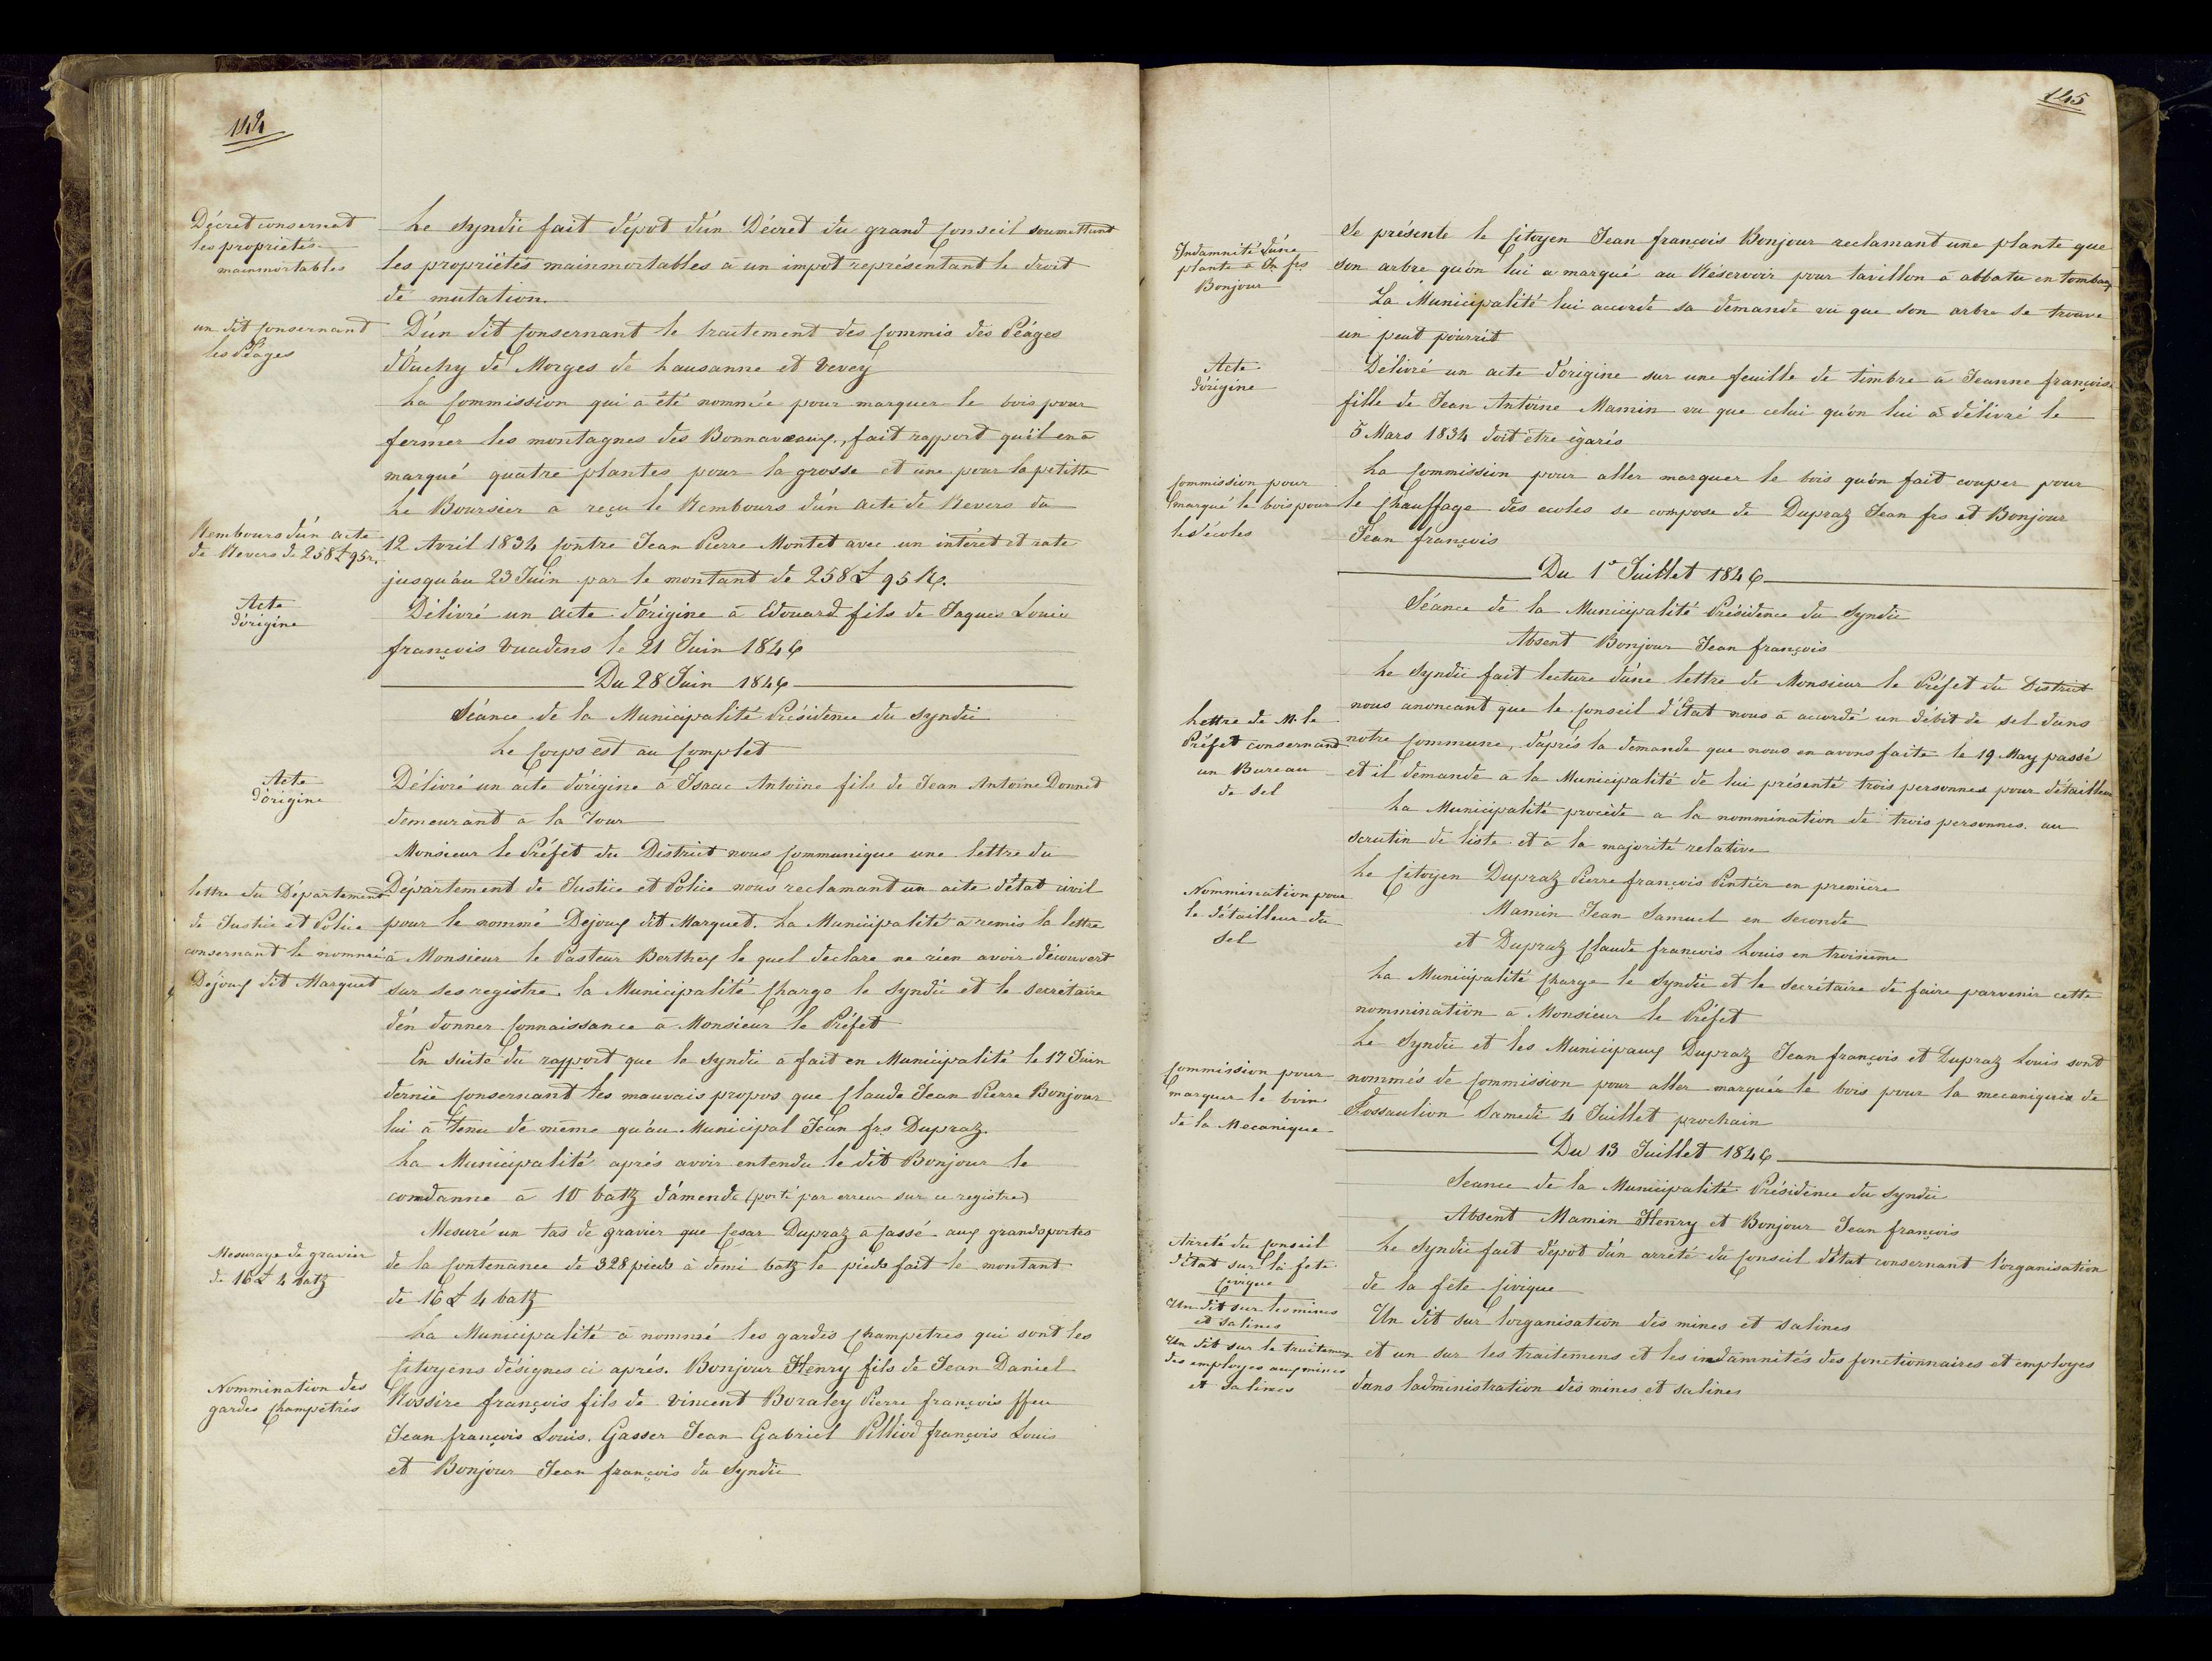 144
Décret consernet
les propriétés
mainmortables
Le Syndic fait dépot d'un Décret du grand Conseil soumettant
les propriétés mainmortables à un impot représentant le droit
de mutation.
un dit consernant
les Péages
D'un dit Consernant le traitement des Commis des Péages
d'Ouchy de Morges de Lausanne et Vevey
La Commission qui a été nommée pour marquer le bois pour
fermer les montagnes des Bonnaveaux, fait rapport qu'il en a
marqué quatre plantes pour la grosse et une pour la petitte
Rembours d'un acte
de Revers de 258 £ 95 r.
Le Boursier a reçu le Rembours d'un acte de Revers du
12 Avril 1834 Contre Jean Pierre Montet avec un intéret et rate
jusqu'au 23 Juin par le montant de 258 £ 95 Rp.
Acte
d'origine
Délivré un acte d'origine à Edouard fils de Jaques Louis
françois Vuadens le 21 Juin 1846
Du 28 Juin 1846
Séance de la Municipalité Présidence du Syndic
Le Corps est au Complet
Acte
d'origine
Délivré un acte d'origine à Isaac Antoine fils de Jean Antoine Donnet
demeurant à la Tour
lettre du Département
de Justice et Police
consernant le nommé
Déjoux dit Marquet
Monsieur le Préfet du District nous Communique une lettre du
Département de Justice et Police nous reclamant un acte d'état civil
pour le nommé Dejoux dit Marquet. La Municipalité a remis la lettre
à Monsieur le Pasteur Berthex le quel déclare ne rien avoir découvert
sur ses registre. la Municipalité Charge le Syndic et le secrétaire
d'en donner Connaissance à Monsieur le Préfet
En suite du rapport que le Syndic a fait en Municipalité le 17 Juin
dernié Consernant les mauvais propos que Claude Jean Pierre Bonjour
lui à tenu de même qu'au Municipal Jean frs Dupraz.
La Municipalité aprés avoir entendu le dit Bonjour le
condanne à 10 batz d'amende (porté par erreur sur ce registre)
Mesurage de gravier
de 16 £ 4 batz
Mesuré un tas de gravier que Cesar Dupraz a Cassé aux grands portes
de la Contenance de 328 pieds à demi batz le pieds fait le montant
de 16 £ 4 batz
Nommination des
gardes Champétrés
La Municipalité à nommé les gardes Champetres qui sont les
Citoyens désignes ci aprés. Bonjour Henry fils de Jean Daniel
Rossire françois fils de Vincent Boraley Pierre françois ffeu
Jean françois Louis. Gasser Jean Gabriel Pilliod françois Louis
et Bonjour Jean françois du Syndic
145
Indamnité d'une
plante à Jn frs
Bonjour
Se présente le Citoyen Jean françois Bonjour reclamant une plante que
son arbre qu'on lui a marqué au Réservoir pour tavillon à abbatu en tombant
La Municipalité lui accorde sa demande vu que son arbre se trouve
un peut pourrit
Acte
d'origine
Délivré un acte d'origine sur une feuille de timbre à Jeanne françoise
fille de Jean Antoine Mamin vu que celui qu'on lui à délivré le
5 Mars 1834 doit être égarés
Commission pour
marqué le bois pour
les écoles
La Commission pour aller marquer le bois qu'on fait couper pour
le Chauffage des ecoles se compose de Dupraz Jean frs et Bonjour
Jean françois
Du 1er Juillet 1846
Séance de la Municipalité Présidence du Syndic
Absent Bonjour Jean françois
Lettre de M. le
Préfet consernand
un Bureau
de Sel
Le Syndic fait lecture d'une lettre de Monsieur le Préfet du District
nous anoncant que le Conseil d'État nous à accordé un débit de sel dans
notre Commune, d'aprés la demande que nous en avons faite le 19 May passé
et il demande à la Municipalité de lui présenté trois personnes pour détailleur
La Municipalité procède a la nommination de trois personnes au
scrutin de liste et à la majorité relative
Nommination pour
le détailleur du
Sel
Le Citoyen Dupraz Pierre françois Pintier en première
Mamin Jean Samuel en seconde
et Dupraz Claude françois Louis en troisième
La Municipalité Charge le Syndic et le secrétaire de faire parvenir cette
nommination à Monsieur le Préfet
Commission pour
marquer le boin
de la Mecanique
Le Syndic et les Municipaux Dupraz Jean françois et Dupraz Louis sont
nommés de Commission pour aller marquér le bois pour la mecanique de
Fossaulion Samedi 4 Juillet prochain
Du 13 Juillet 1846
Seance de la Municipalité Présidence du Syndic
Absent Mamin Henry et Bonjour Jean françois
Arreté du Conseil
d'État sur la fete
Civique
Le Syndic fait dépot d'un arreté du Conseil d'État consernant l'organisation
de la fête Civique
Un dit sur les mines
et Salines
Un dit sur l'organisation des mines et salines
Un dit sur le traitemen
des employes aux mines
et Salines
et un sur les traitemens et les indamnités des fonctionnaires et employes
dans l'administration des mines et salines